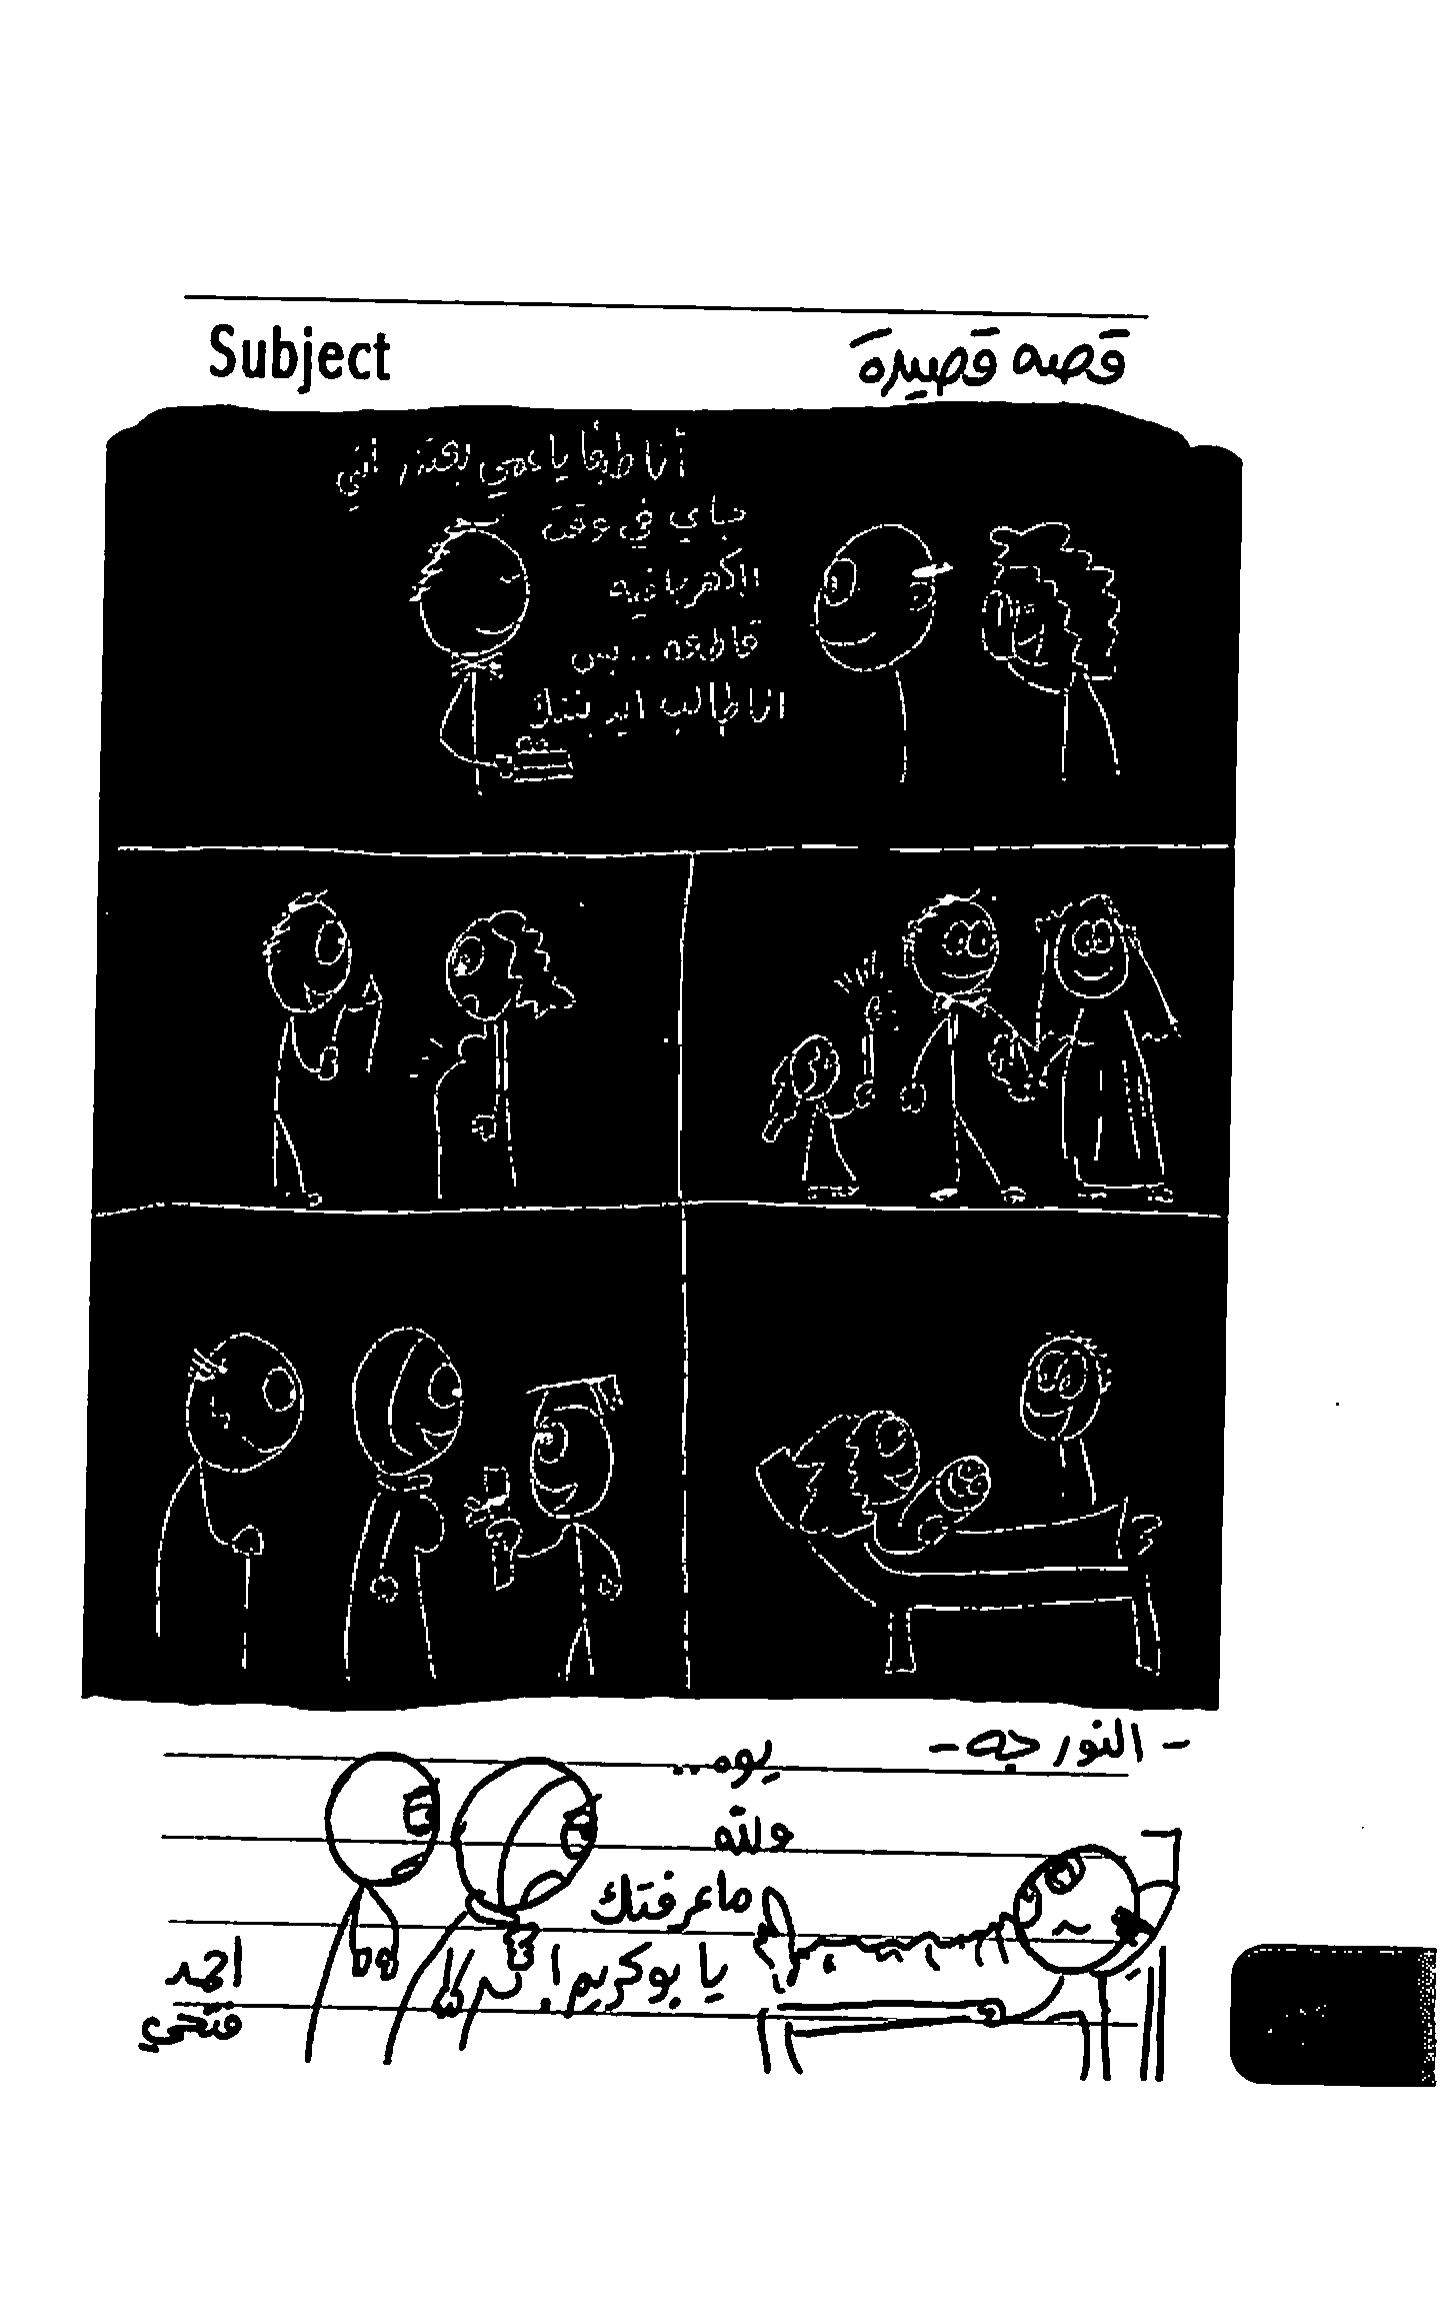 Subject
قصه قصيرة
أنا طبعًا يا عمي بعتذر اني
جاي في وقت
الكهربا فيه
قاطعه.. بس
انا طالب ايد بنتك
- النور جه -
يوه..
ولله
ماعرفتك
يا بو كريم!
احمد
فتحي